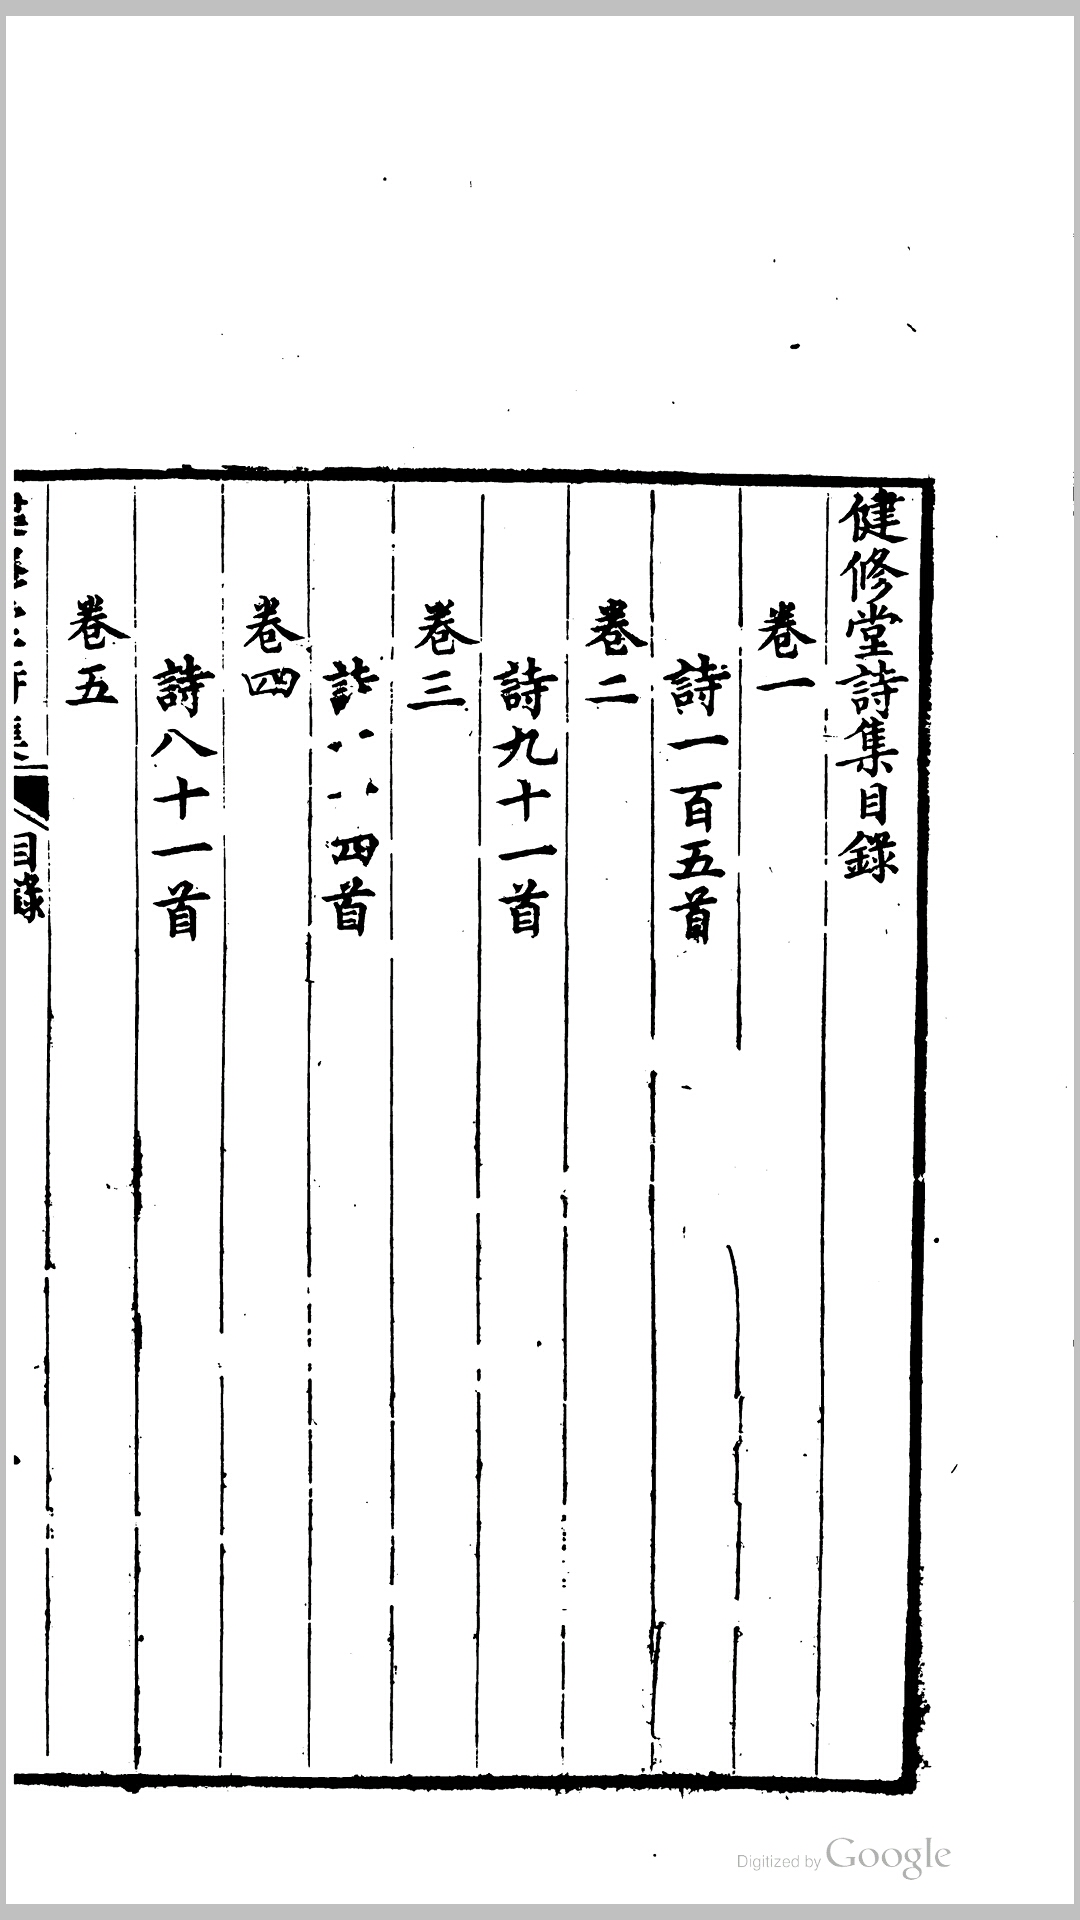 健修堂詩集目錄
卷一
詩一百五首
卷二
詩九十一首
卷三
詩 四首
卷四
詩八十一首
卷五
目錄
Digitized by Google